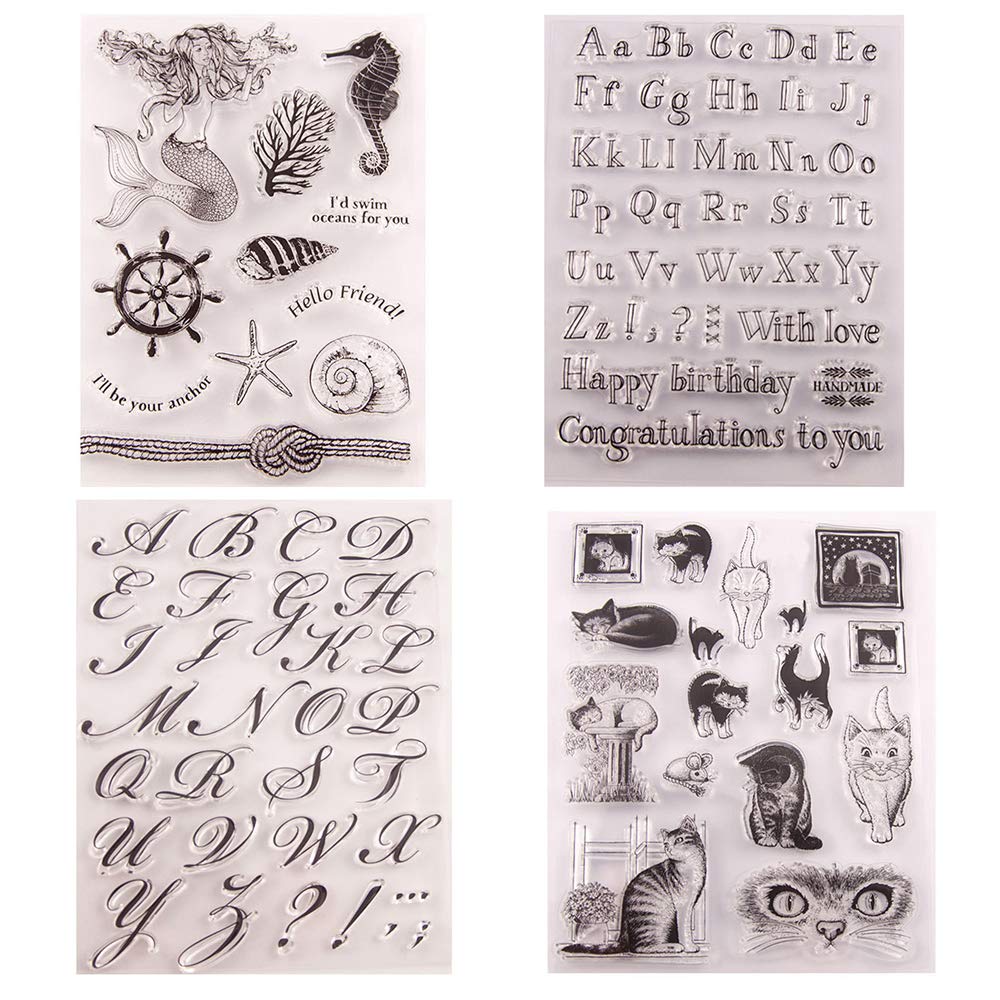 I'd swim
oceans for you
Hello Friend!
I'll be your anchor
Aa Bb Cc Dd Ee
Ff Gg Hh Ii Jj
Kk Ll Mm Nn Oo
Pp Qq Rr Ss Tt
Uu Vv Ww Xx Yy
Zz ! , ? With love
Happy birthday HANDMADE
Congratulations to you
A B C D
E F G H
I J K L
M N O P
Q R S T
U V W X
Y Z ? ! , ; "